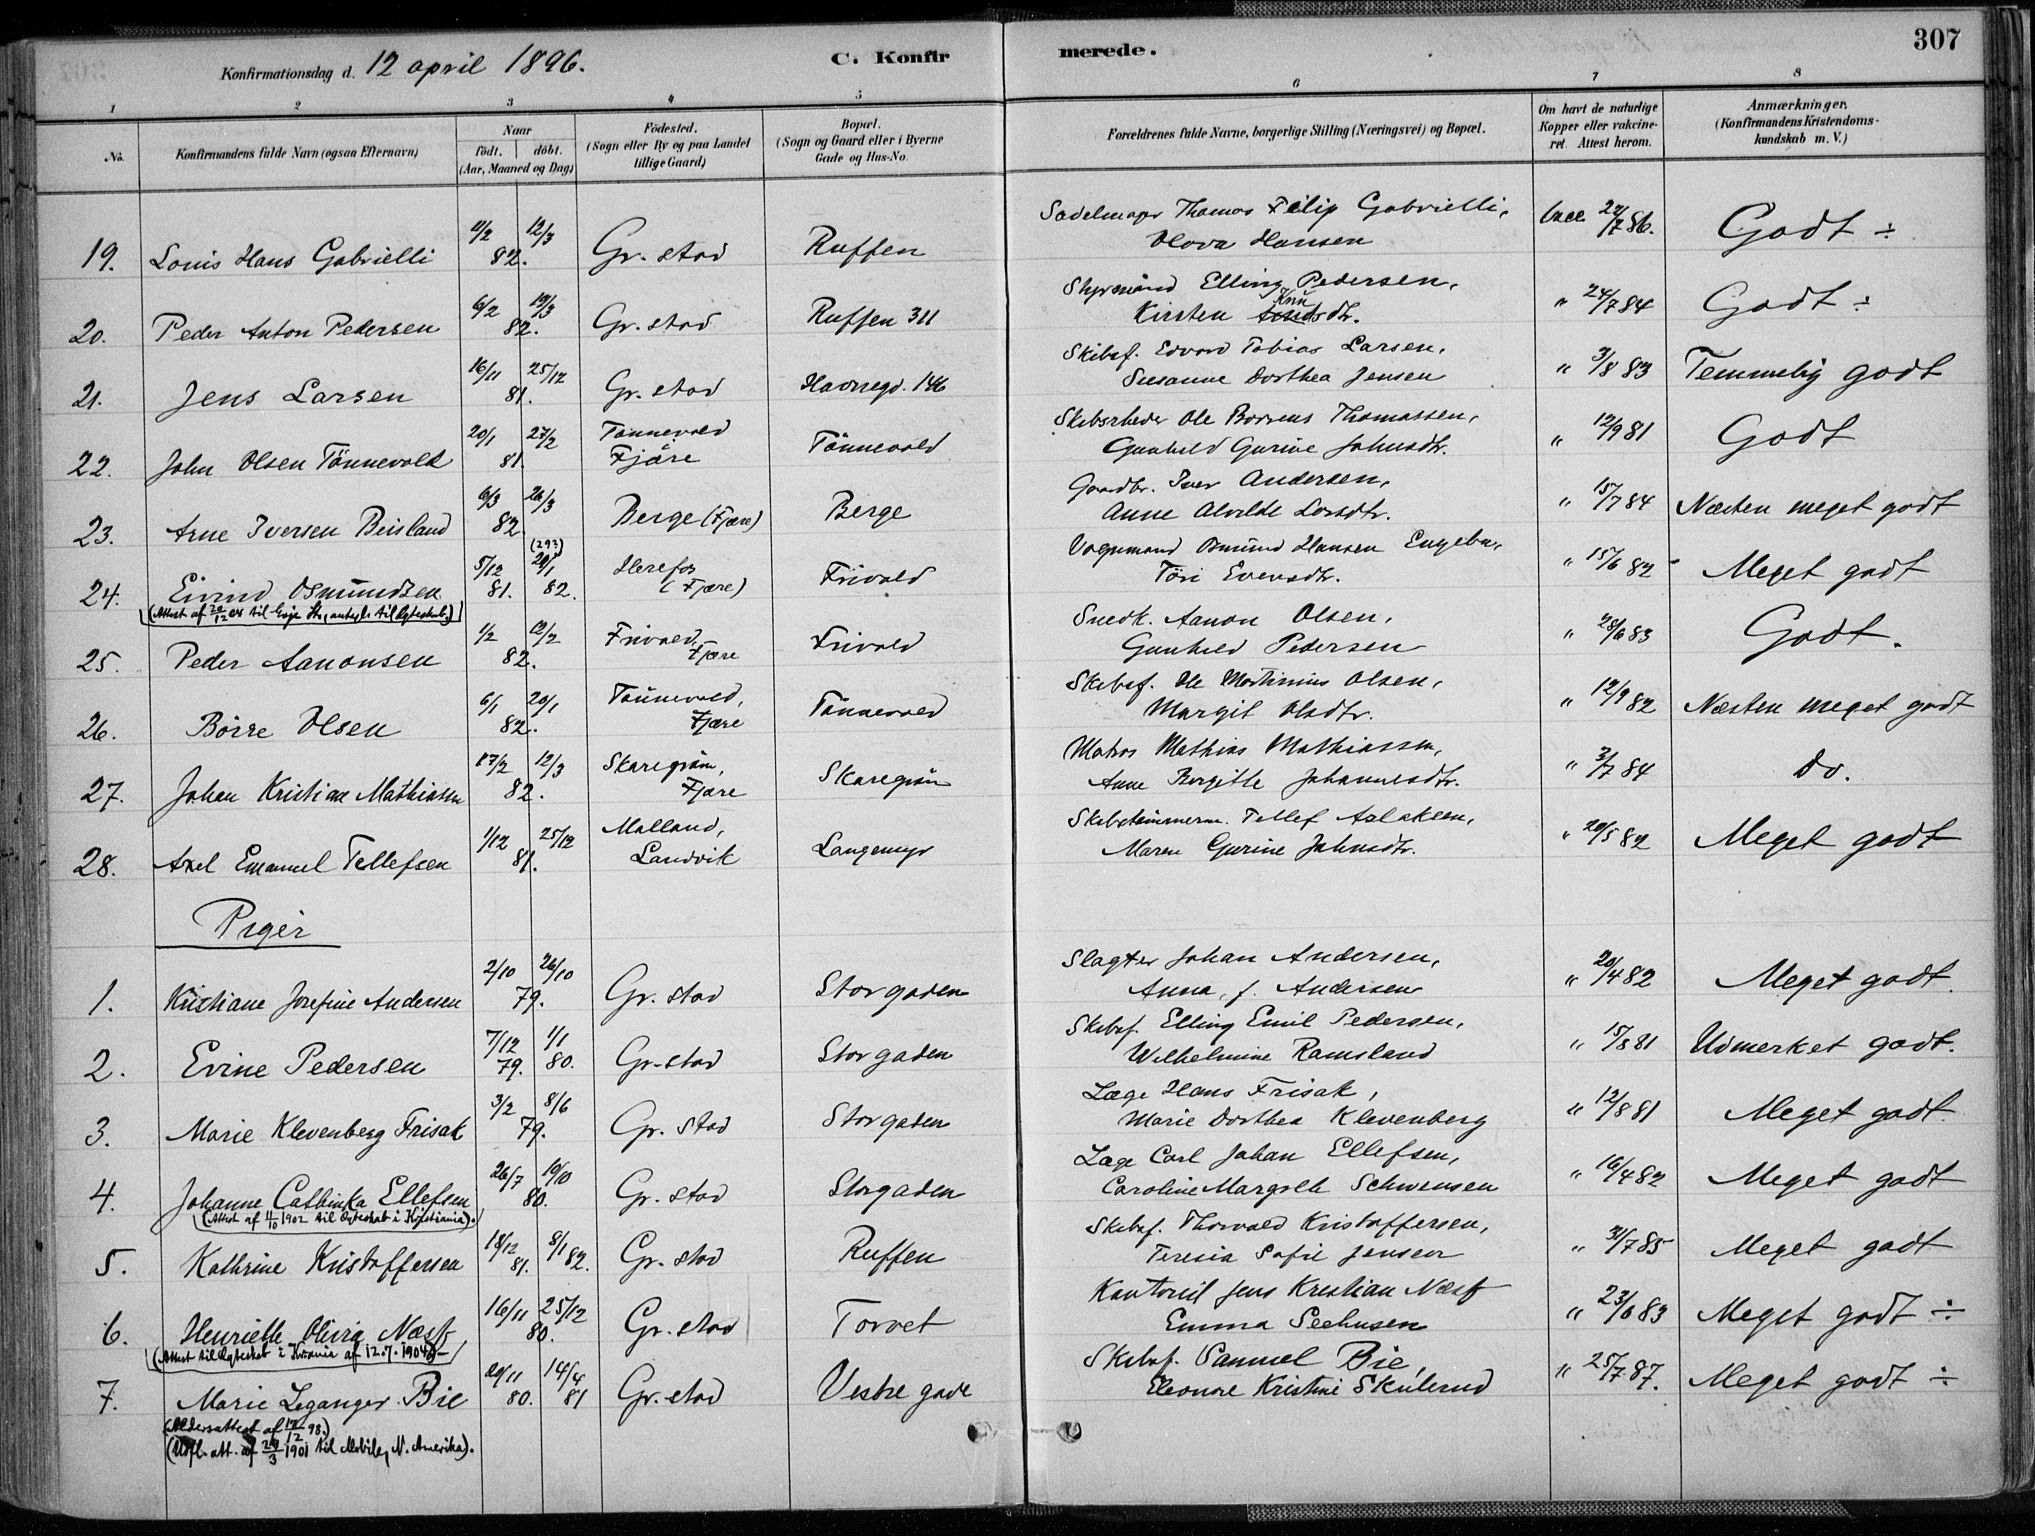 307
Konfirmationsdag d. 12 april 1896.
C. Konfirmerede.
1 2 3 4 5 6 7 8
No.
Konfirmandens fulde Navn (ogsaa Efternavn)
Naar
födt. döbt.
(Aar, Maaned og Dag)
Födested.
(Sogn eller By og paa Landet
tillige Gaard)
Bopæl.
(Sogn og Gaard eller i Byerne
Gade og Hus-No.
Forældrenes fulde Navne, borgerlige Stilling (Næringsvei) og Bopæl.
Om havt de naturlige
Kopper eller vakcine-
ret. Attest herom.
Anmærkninger.
(Konfirmandens Kristendoms-
kundskab m. V.)
19. Louis Hans Gabrielli 12/3 82. Gr. stad Ruffen
Sadelmager Thomas Filip Gabrielli,
Olava Hansen
vacc 27/7 86. Godt ÷
20. Peder Anton Pedersen 6/2 19/3 82. Gr. stad Ruffen 311
Styrmand Elling Pedersen,
Kirsten Knudsdtr.
" 24/7 84 Godt ÷
21. Jens Larsen 16/11 25/12 81. Gr. stad Havnegd. 146
Skibsf. Edvard Tobias Larsen,
Susanne Dorthea Jensen
" 3/8 83 Temmelig godt
22. John Olsen Tönnevold 20/1 27/2 81. Tönnevold Fjære Tönnevold
Skibsrheder Ole Börrens Thomassen,
Gunhild Gurine Johnsdtr.
" 12/9 81 Godt
23. Arne Iversen Beisland 6/3 26/3 82. Berge (Fjære) Berge
Gaardbr. Iver Andersen,
Anne Alvilde Larsdtr.
" 15/7 84 Næsten meget godt
24. Eivind Osmundsen 5/12 81. (293) 29/1 82. Herefos (Fjære) Frivold
til Evje
Vognmand Osmund Hansen
Töri Evensdtr.
" 15/6 82 Meget godt
25. Peder Aanonsen 1/2 12/2 82. Frivold, Fjære Frivold
Snedk. Aanon Olsen,
Gunhild Pedersen
" 28/6 83 Godt.
26. Börre Olsen 6/1 20/1 82. Tönnevold, Fjære Tönnevold
Skibsf. Ole Martinius Olsen,
Margit Olsdtr.
" 12/9 82 Næsten meget godt
27. Johan Kristian Mathiasen 17/2 12/3 82. Skaregrön, Fjære Skaregrön
Matros Mathias Mathiassen,
Anne Birgitte Johannesdtr.
" 3/7 84 do.
28. Axel Emanuel Tellefsen 1/12 25/12 81. Malland, Landvik Langemyr
Skibstömmerm. Tellef Aslaksen,
Maren Gurine Johnsdtr.
" 20/5 82 Meget godt
Piger
1. Kristiane Josefine Andersen 2/10 26/10 79. Gr. stad Storgaden
Slagter Johan Andersen,
Anna, f. Andersen
" 20/4 82 Meget godt.
2. Evine Pedersen 7/12 79. 1/1 80. Gr. stad Storgaden
Skibsf. Elling Emil Pedersen,
Wilhelmine Ramsland
" 15/8 81 Udmerket godt.
3. Marie Klevenberg Frisak 3/2 8/6 79. Gr. stad Storgaden
Læge Hans Frisak,
Marie Dorthea Klevenberg
" 12/8 81 Meget godt.
4. Johanne Cathinka Ellefsen 26/7 19/10 80. Gr. stad Storgaden
(Attest af 11/10 1902 til Egteskab i Kristiania).
Læge Carl Johan Ellefsen,
Caroline Margrethe Schwensen
" 16/4 82 Meget godt
5. Kathrine Kristoffersen 18/12 81. 8/1 82. Gr. stad Ruffen
Skibsf. Thorvald Kristoffersen,
Teresia Sofie Jensen
" 31/7 85 Meget godt
6. Henriette Olivia Næss 16/11 25/12 80. Gr. stad Torvet
(Attest til Egteskab i Kr.ania af 12.7.1904)
Jens Kristian Næss
Emma Seehusen
" 23/6 83 Meget godt ÷
7. Marie Leganger Bie 29/11 80. 14/4 81 Gr. stad Vestregade
(Aldersattest af 12/12 98.)
(Udfl. att. af 29/3 1901 til Mobile, N. Amerika).
Skibsf. Samuel Bie,
Eleonore Kristine Skulerud
" 25/7 87. Meget godt ÷